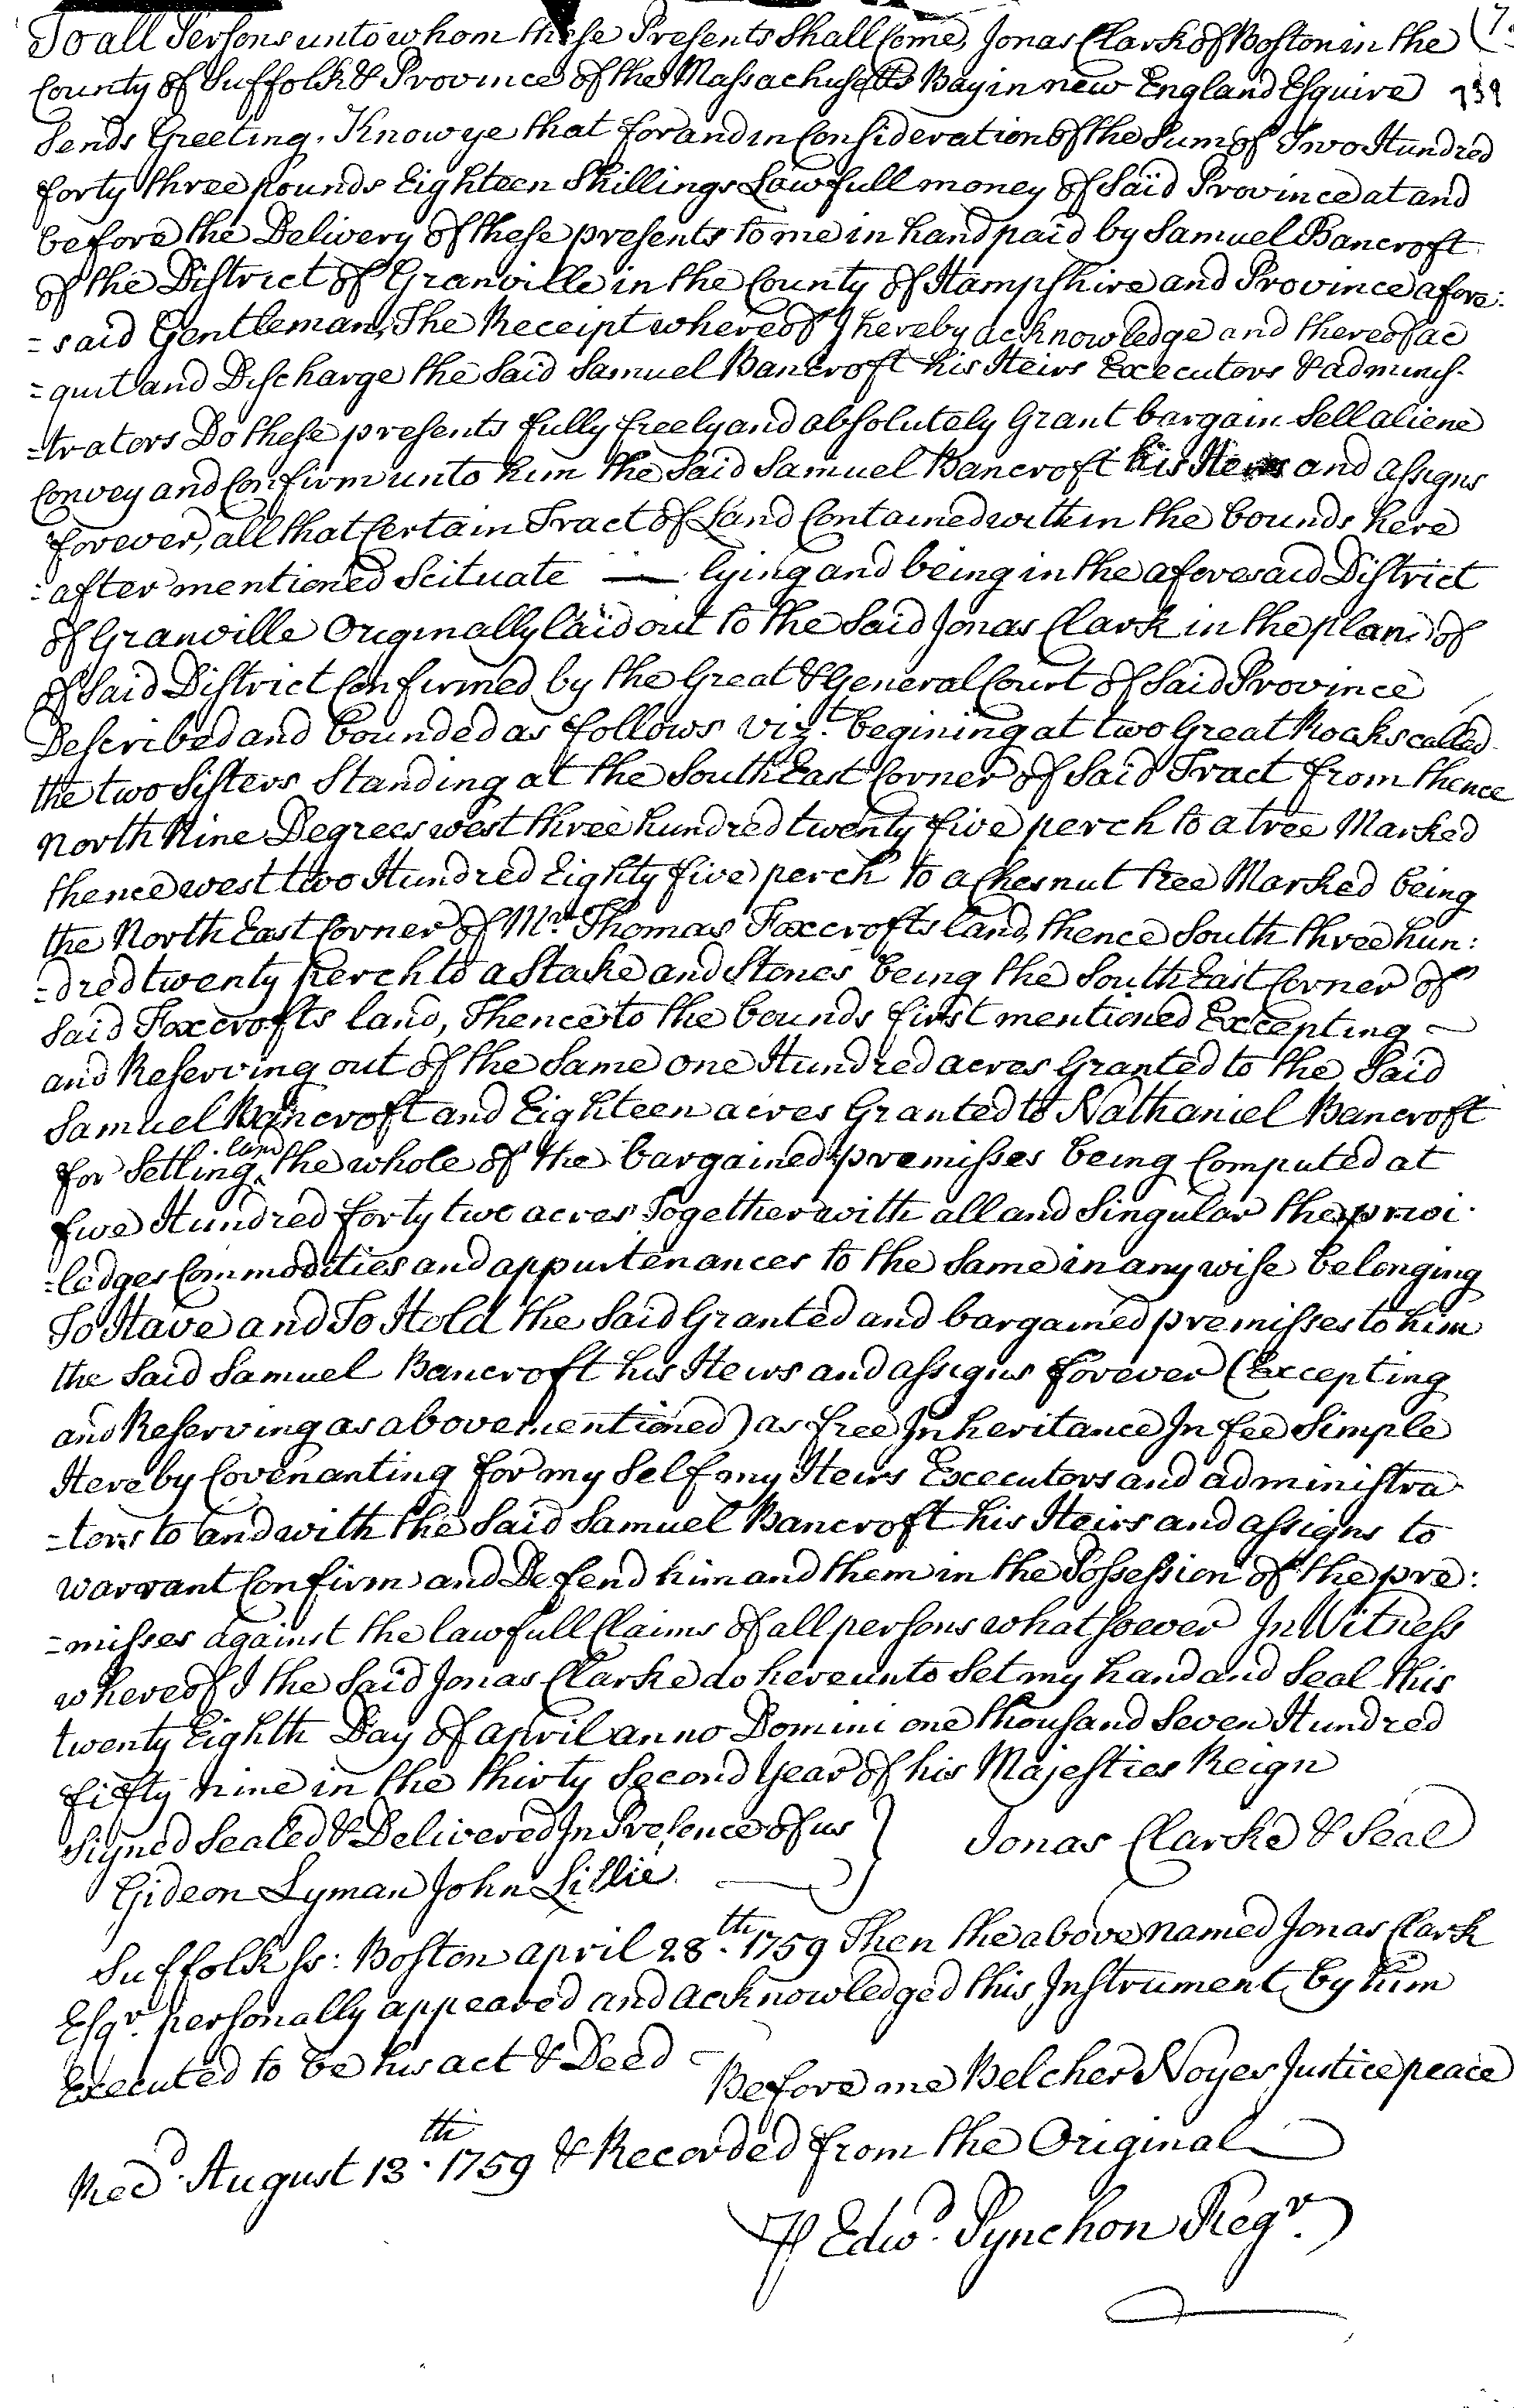 To all Persons unto whom these Presents Shall Come, Jonas Clark of Boston in the
County of Suffolk & Province of the Massachusetts Bay in new England Esquire
Sends Greeting. Know ye that for and in Consideration of the Sum of Two Hundred
forty three pounds Eighteen Shillings Lawfull money of Said Province at and
before the Delivery of these presents to me in hand paid by Samuel Bancroft
of the District of Granville in the County of Hampshire and Province afore:
=said Gentleman, The Receipt whereof I hereby acknowledge and thereof ac
=quit and Discharge the Said Samuel Bancroft his Heirs Executors & adminis-
=trators Do these presents fully freely and absolutely Grant bargain Sell aliene
Convey and Confirm unto him the Said Samuel Bancroft his Heirs and assigns
forever, all that Certain Tract of Land Contained within the bounds here
=after mentioned Scituate — lying and being in the aforesaid District
of Granville Originally laid out to the Said Jonas Clark in the plan of
of Said District Confirmed by the Great & General Court of Said Province
Described and bounded as follows vizt. begining at two Great Rocks called
the two Sisters Standing at the South East Corner of Said Tract from thence
North Nine Degrees west three hundred twenty five perch to a tree Marked
thence west two Hundred Eighty five perch to a Chesnut tree Marked being
the North East Corner of Mr. Thomas Foxcrofts land, thence South three hun:
=dred twenty perch to a Stake and Stones being the South East Corner of
Said Foxcrofts land, Thence to the bounds first mentioned Excepting
and Reserving out of the Same one Hundred acres Granted to the Said
Samuel Bancroft and Eighteen acres Granted to Nathaniel Bancroft
for Setling land the whole of the bargained premisses being Computed at
five Hundred forty two acres Together with all and Singular the privi
=ledges Commodities and appurtenances to the Same in any wise belonging
To Have and To Hold the Said Granted and bargained premisses to him
the Said Samuel Bancroft his Heirs and assigns forever (Excepting
and Reserving as above mentioned) as free Inheritance In fee Simple
Hereby Covenanting for my Self my Heirs Executors and administra
=tors to and with the Said Samuel Bancroft his Heirs and assigns to
warrant Confirm and Defend him and them in the Possession of the pre:
=misses against the lawfull Claims of all persons whatsoever In Witness
whereof I the Said Jonas Clarke do hereunto Set my hand and Seal this
twenty Eighth Day of april anno Domini one thousand Seven Hundred
fifty nine in the thirty Second Year of his Majesties Reign
Signed Sealed & Delivered In Presence of us } Jonas Clarke & Seal
Gideon Lyman John Lillie.
Suffolk Ss: Boston april 28th. 1759 Then the above named Jonas Clark
Esqr. personally appeared and acknowledged this Instrument by him
Executed to be his act & Deed
Before me Belcher Noyes Justice peace
Recd. August 13th. 1759 & Recorded from the Original
P Edwd. Pynchon Regr.